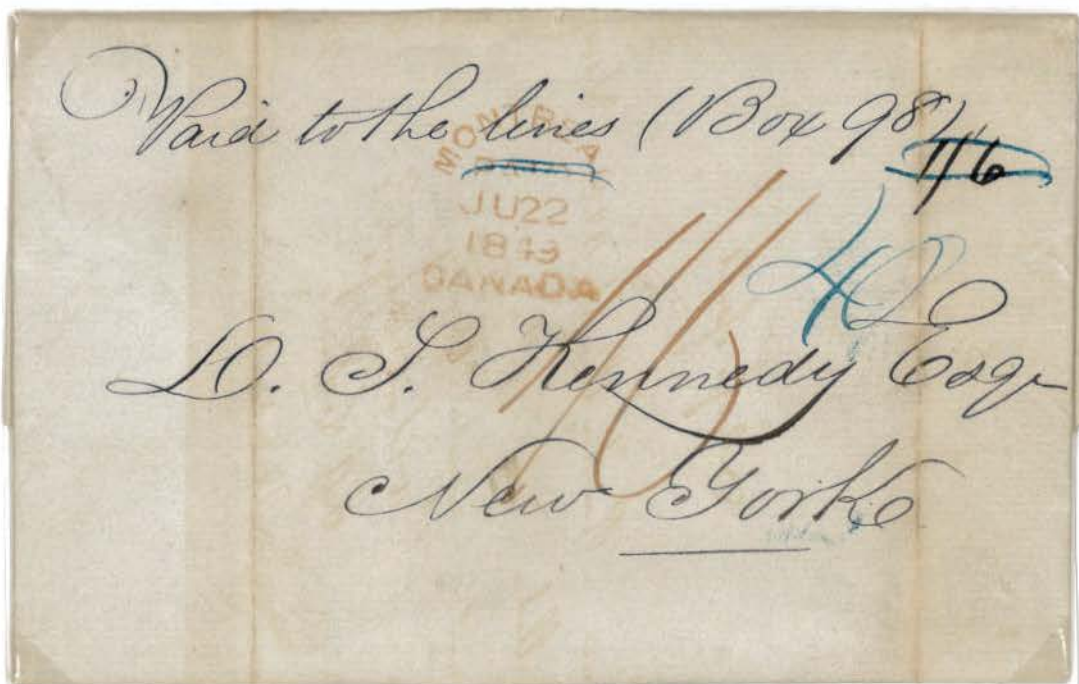 Paid to the lines (Box 98)
1/6
MONTREAL
PAID
JU 22
1849
CANADA
1/6
40
D. S. Kennedy Esqr
New York